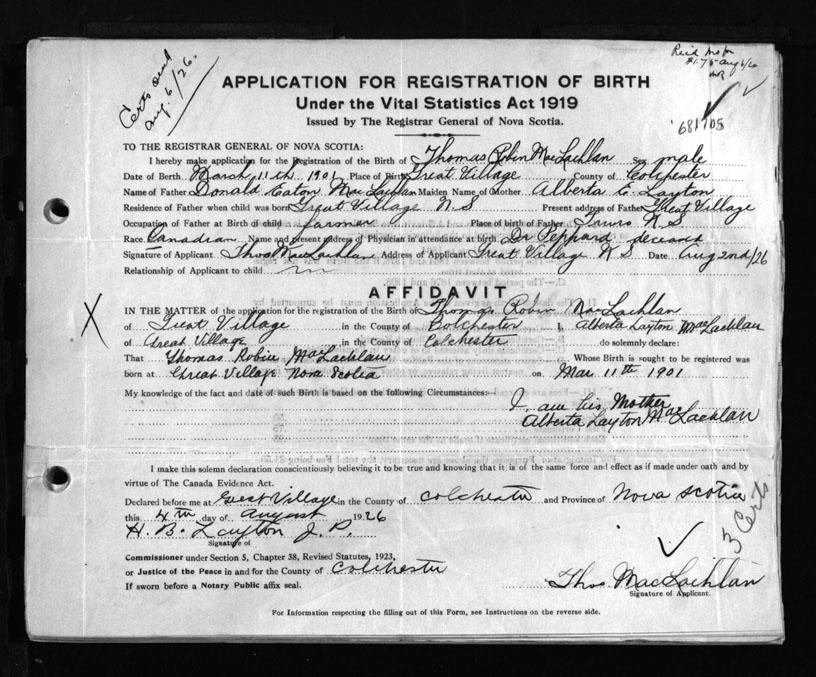 Certs sent
Aug. 6/26.
$1.75 Aug 6/26
681705
APPLICATION FOR REGISTRATION OF BIRTH
Under the Vital Statistics Act 1919
Issued by The Registrar General of Nova Scotia.
TO THE REGISTRAR GENERAL OF NOVA SCOTIA:
I hereby make application for the Registration of the Birth of Thomas Robin MacLachlan Sex male
Date of Birth March 11th 1901 Place of Birth Great Village County of Colchester
Name of Father Donald Eaton MacLachlan Maiden Name of Mother Alberta E. Layton
Residence of Father when child was born Great Village N S Present address of Father Great Village
Occupation of Father at Birth of child farmer Place of birth of Father Truro N. S
Race Canadian Name and present address of Physician in attendance at birth Dr Peppard deceased
Signature of Applicant Thos MacLachlan Address of Applicant Great Village N S Date Aug 2nd/26
Relationship of Applicant to child
AFFIDAVIT
IN THE MATTER of the application for the registration of the Birth of Thomas Robin MacLachlan
of Great Village in the County of Colchester I, Alberta Layton MacLachlan
of Great Village in the County of Colchester do solemnly declare:
That Thomas Robin MacLachlan Whose Birth is sought to be registered was
born at Great Village Nova Scotia on Mar 11th 1901
My knowledge of the fact and date of such Birth is based on the following Circumstances:-
I am his Mother
Alberta Layton MacLachlan
I make this solemn declaration conscientiously believing it to be true and knowing that it is of the same force and effect as if made under oath and by
virtue of The Canada Evidence Act.
Declared before me at Great Village in the County of Colchester and Province of Nova Scotia
this 4th day of August 1926
H. B. Layton J. P.
Signature of
3 Certs
Commissioner under Section 5, Chapter 38, Revised Statutes, 1923,
or Justice of the Peace in and for the County of Colchester
If sworn before a Notary Public affix seal.
Thos. MacLachlan
Signature of Applicant.
For Information respecting the filling out of this Form, see Instructions on the reverse side.